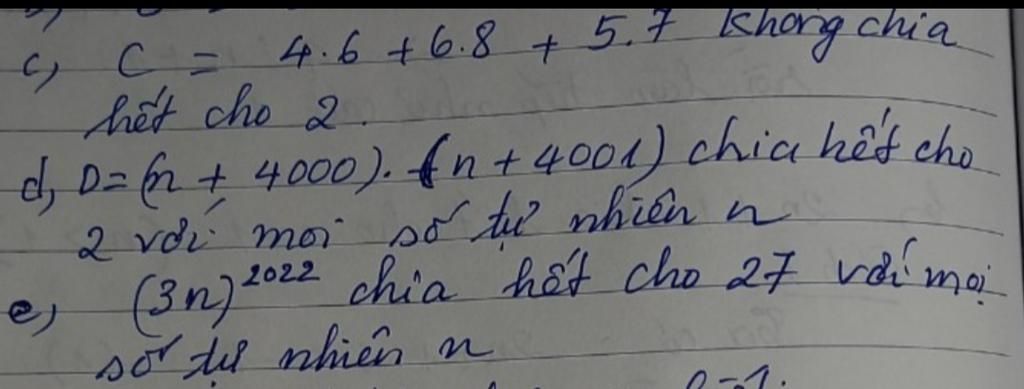 c, C = 4.6 + 6.8 + 5.7 không chia
hết cho 2.
d, D = (n + 4000). (n + 4001) chia hết cho
2 với mọi số tự nhiên n
e, (3n)^2022 chia hết cho 27 với mọi
số tự nhiên n